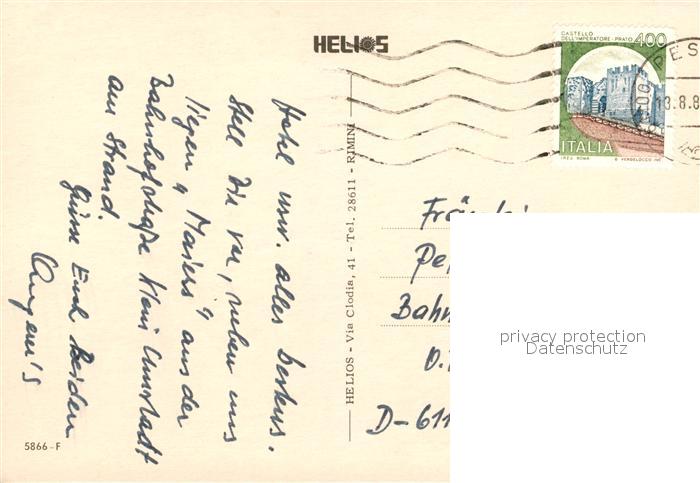 HELIOS
CASTELLO
DELL'IMPERATORE - PRATO
400
ITALIA
I.P.Z.S. ROMA
PES
13.8.8
Hotel usw. alles bestens.
Stell Dir vor, neben uns
liegen 4 "Maiers" aus der
Bahnhofstraße Klein Umstadt
am Strand.
Grüsse Euch Beiden
HELIOS - Via Clodia, 41 - Tel. 28611 - RIMINI
Fräulei
Pe
Bahn
O.
D-611
privacy protection
Datenschutz
5866-F